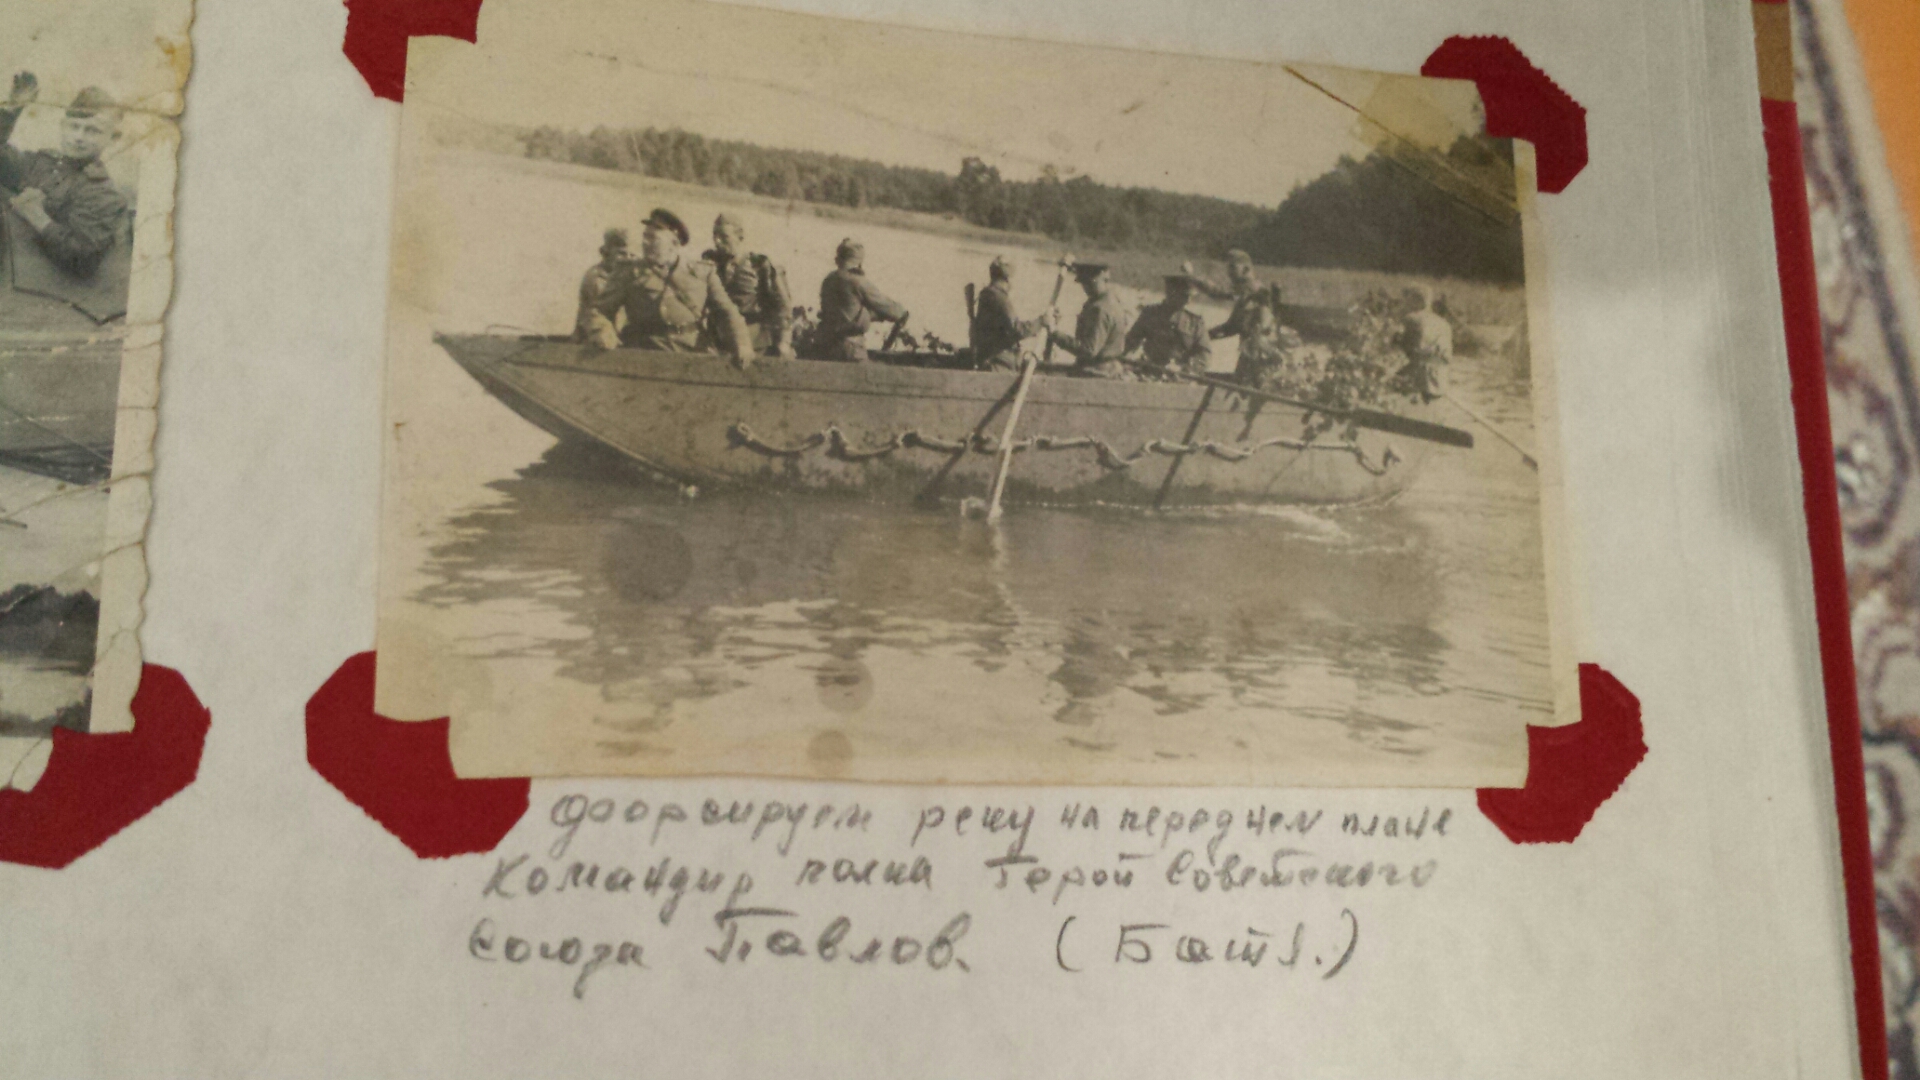 Форсируем реку на переднем плане
Командир полка Герой Советского
Союза Павлов. (Батя.)